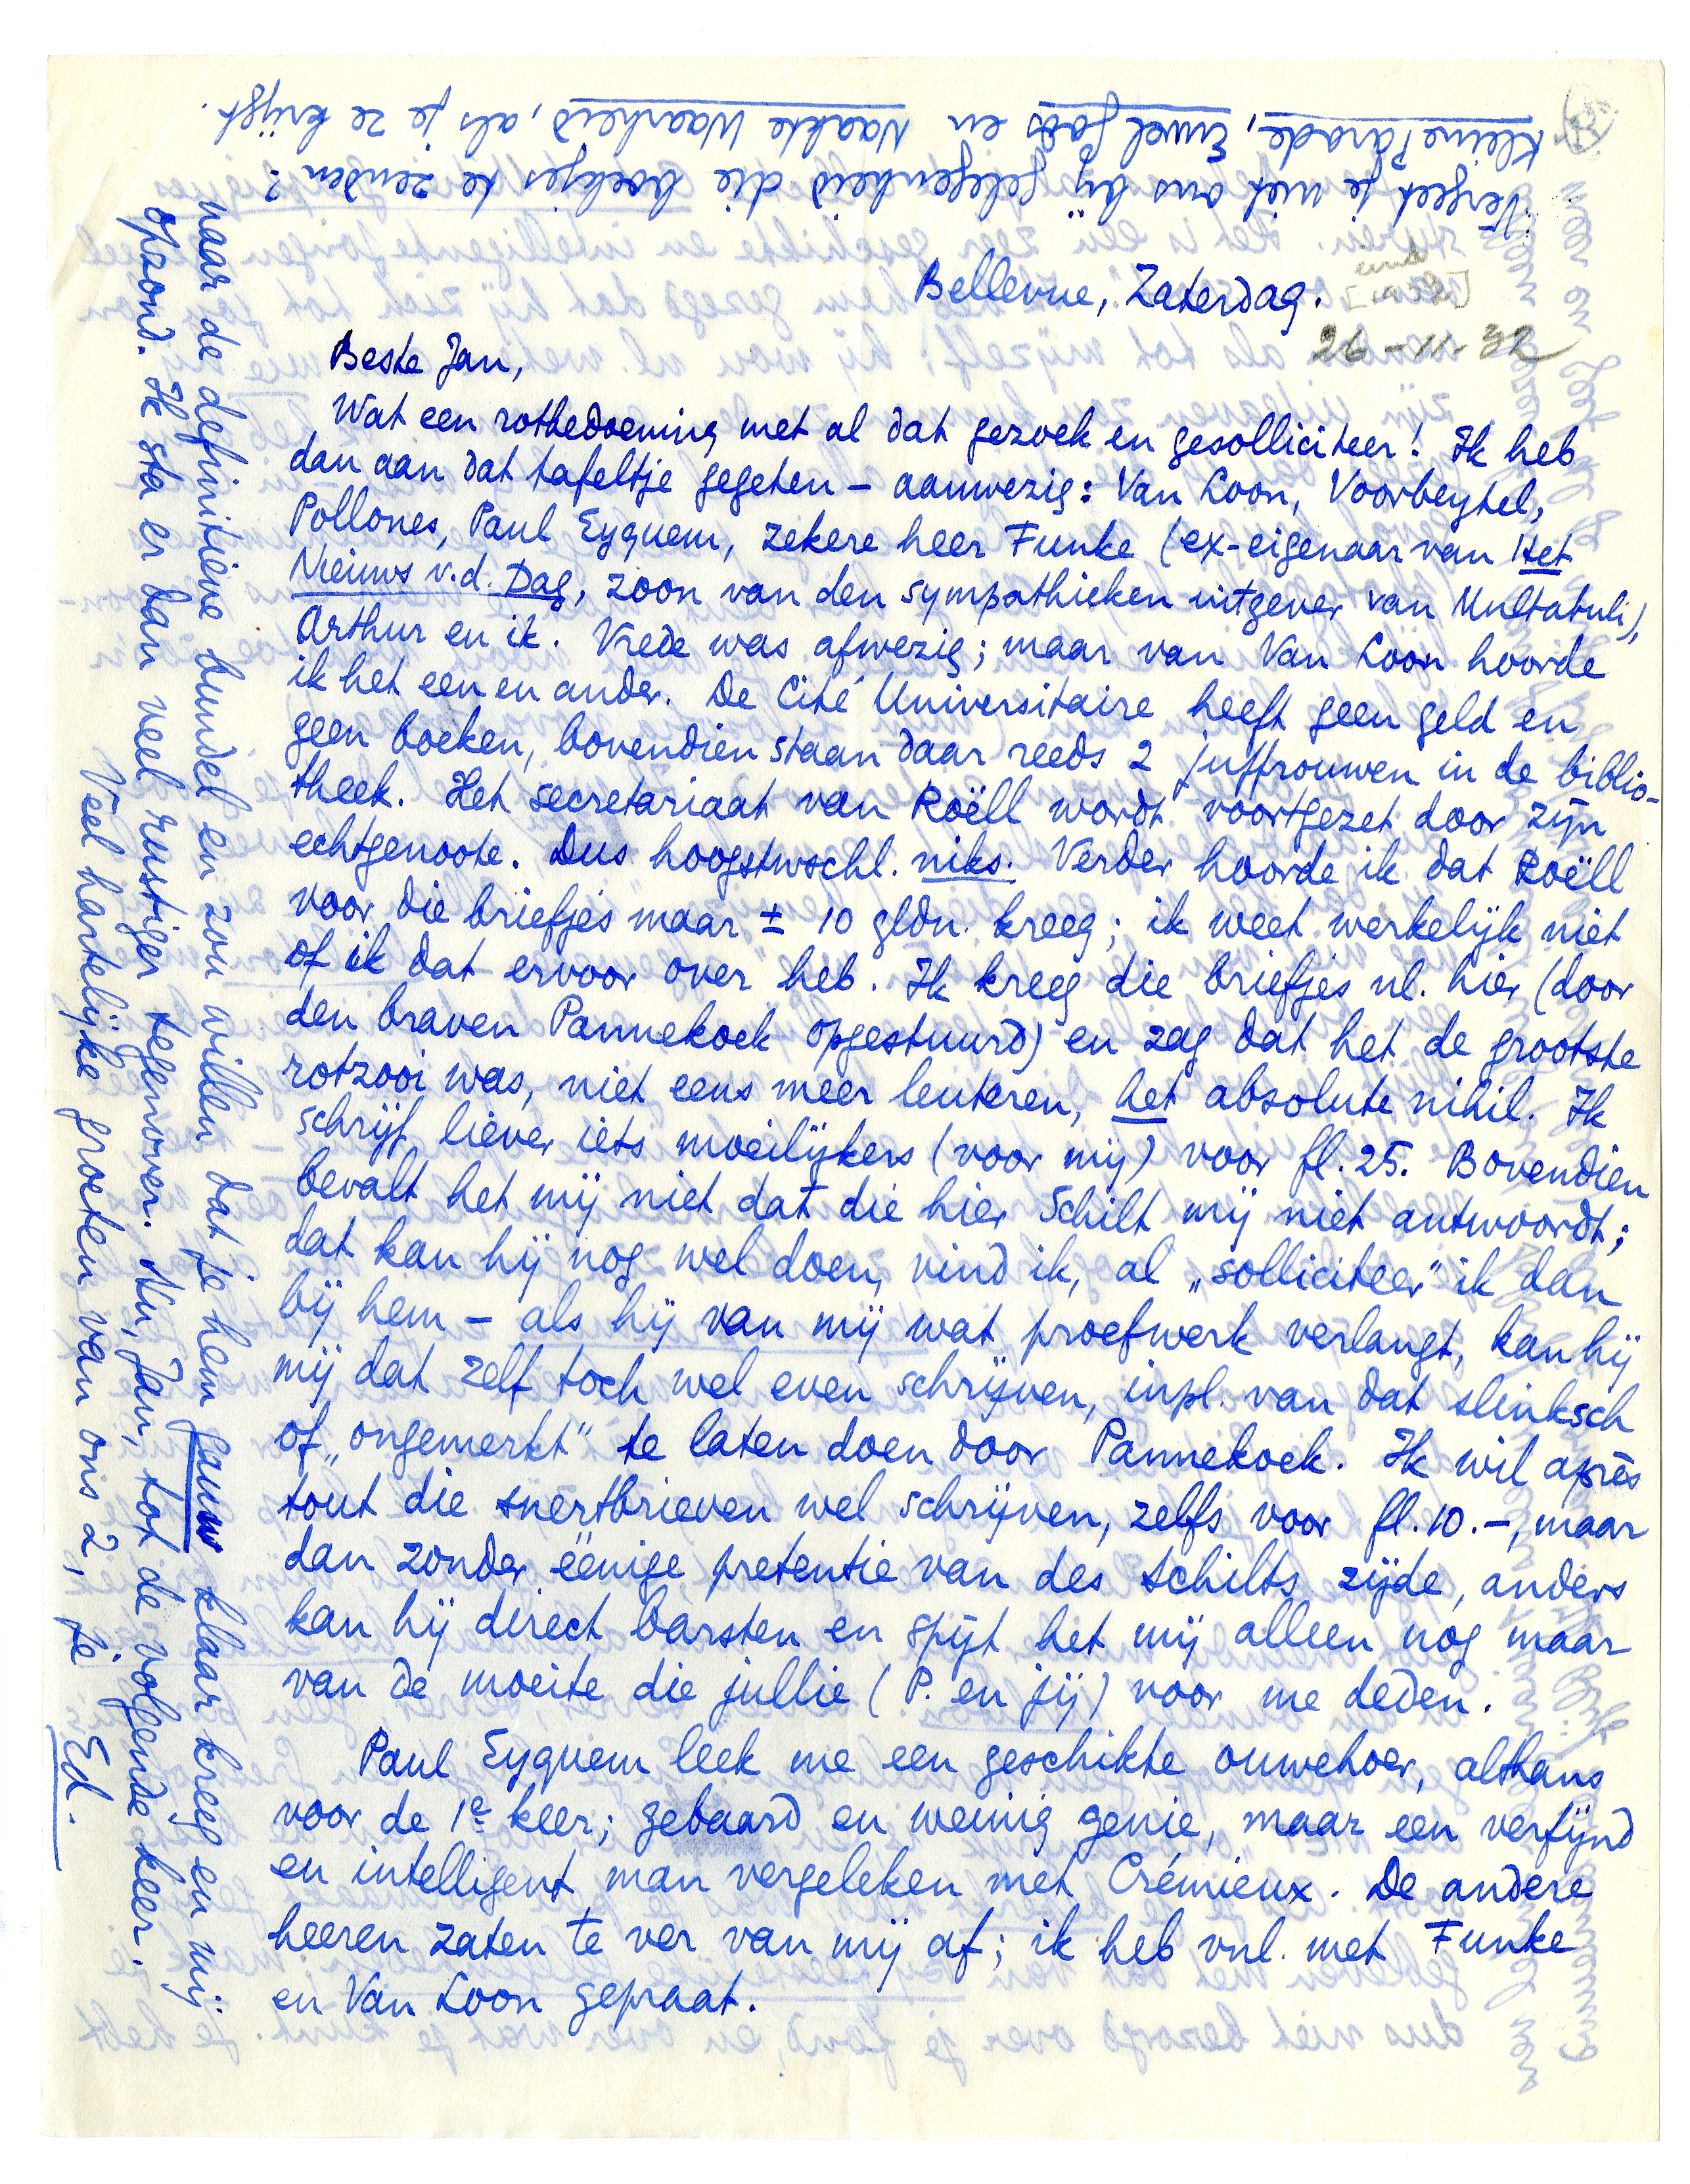 Bellevue, Zaterdag.
26-11-32
Beste Jan,
Wat een rotbedoening met al dat gezoek en gesolliciteer! Ik heb
dan aan dat tafeltje gegeten – aanwezig: Van Loon, Voorbeytel,
Pollones, Paul Eyquem, zekere heer Funke (ex-eigenaar van Het
Nieuws v.d. Dag, zoon van den sympathieken uitgever van Multatuli),
Arthur en ik. Vrede was afwezig; maar van Van Loon hoorde
ik het een en ander. De Cité Universitaire heeft geen geld en
geen boeken, bovendien staan daar reeds 2 juffrouwen in de biblio-
theek. Het secretariaat van Roëll wordt voortgezet door zijn
echtgenoote. Dus hoogstwschl. niks. Verder hoorde ik dat Roëll
voor die briefjes maar ± 10 gldn. kreeg; ik weet werkelijk niet
of ik dat ervoor over heb. Ik kreeg die briefjes nl. hier (door
den braven Pannekoek opgestuurd) en zag dat het de grootste
rotzooi was, niet eens meer leuteren, het absolute nihil. Ik
schrijf liever iets moeilijkers (voor mij) voor fl. 25. Bovendien
bevalt het mij niet dat die hier Schilt mij niet antwoordt;
dat kan hij nog wel doen, vind ik, al „solliciteer" ik dan
bij hem – als hij van mij wat proefwerk verlangt, kan hij
mij dat zelf toch wel even schrijven, inpl. van dat slinksch
of „ongemerkt" te laten doen door Pannekoek. Ik wil après
tout die snertbrieven wel schrijven, zelfs voor fl. 10.–, maar
dan zonder ééenige pretentie van des Schilts zijde, anders
kan hij direct barsten en spijt het mij alleen nog maar
van de moeite die jullie (P. en jij) voor me deden.
Paul Eyquem leek me een geschikte ouwehoer, althans
voor de 1e keer; gebaard en weinig genie, maar een verfijnd
en intelligent man vergeleken met Crémieux. De andere
heeren zaten te ver van mij af; ik heb vnl. met Funke
en Van Loon gepraat.
naar de definitieve bundel en zou willen dat je hem gauw klaar kreeg en mij
opzond. Ik sta er dan veel rustiger tegenover. Nu, Jan, tot de volgende keer.
Veel hartelijke groeten van ons 2, je
Ed.
Vergeet je niet ons bij gelegenheid die boekjes te zenden?
Kleine Parade, Euvel Gods en Naakte Waarheid, als je ze krijgt.